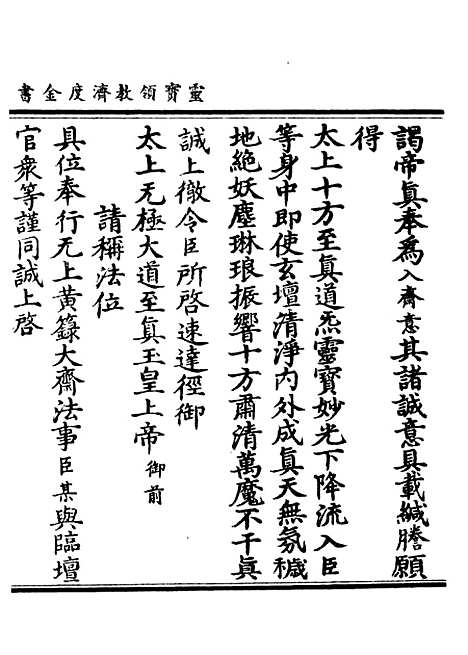 靈寶領教濟度金書
謁帝眞奉爲入齋意其諸誠意具載緘謄願
得
太上十方至眞道炁靈寶妙光下降流入臣
等身中即使玄壇清淨内外成眞天無氛穢
地絶妖塵琳琅振響十方肅清萬魔不干眞
誠上徹令臣所啓速達徑御
太上无極大道至眞玉皇上帝御前
請稱法位
具位奉行无上黄籙大齋法事臣某與臨壇
官衆等謹同誠上啓